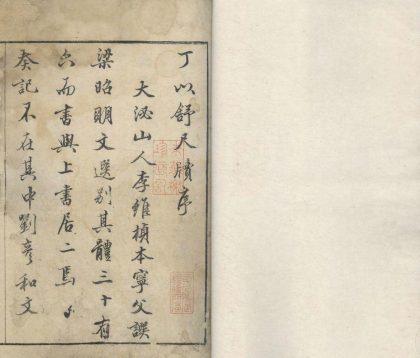 丁以舒尺牘序
大泌山人李維楨本寧父譔
梁昭明文選别其體三十有
六而書與上書居二焉
奏記不在其中劉彦和文